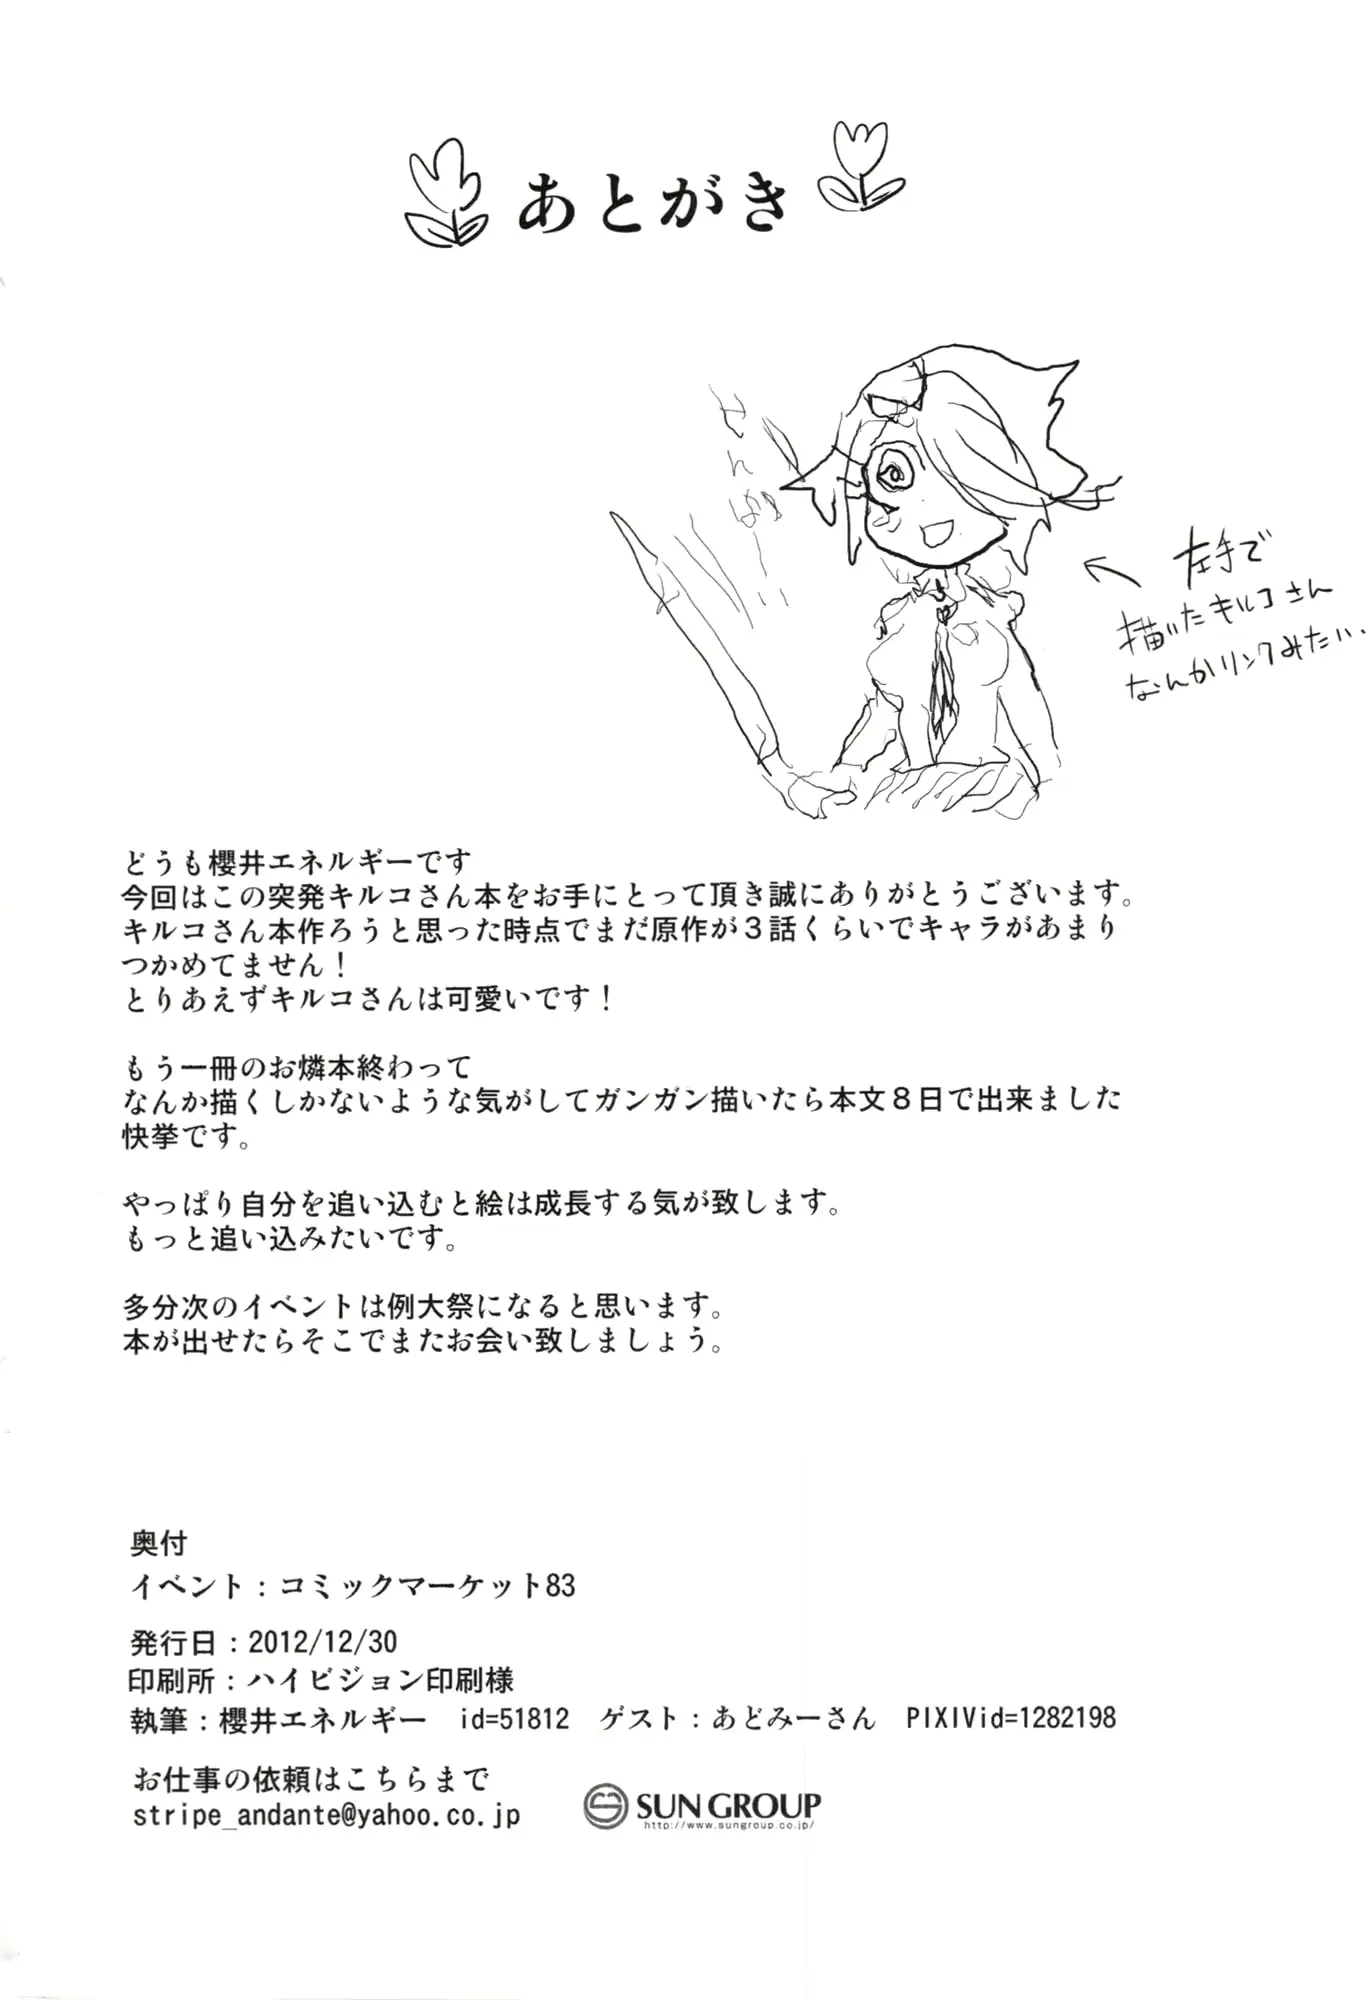 あとがき
せんぱーい
左手で
描いたキルコさん
なんかリンクみたい.
どうも櫻井エネルギーです
今回はこの突発キルコさん本をお手にとって頂き誠にありがとうございます。
キルコさん本作ろうと思った時点でまだ原作が３話くらいでキャラがあまり
つかめてません！
とりあえずキルコさんは可愛いです！
もう一冊のお燐本終わって
なんか描くしかないような気がしてガンガン描いたら本文８日で出来ました
快挙です。
やっぱり自分を追い込むと絵は成長する気が致します。
もっと追い込みたいです。
多分次のイベントは例大祭になると思います。
本が出せたらそこでまたお会い致しましょう。
奥付
イベント：コミックマーケット83
発行日：2012/12/30
印刷所：ハイビジョン印刷様
執筆：櫻井エネルギー　id=51812　ゲスト：あどみーさん　PIXIVid=1282198
お仕事の依頼はこちらまで
stripe_andante@yahoo.co.jp
SUN GROUP
http://www.sungroup.co.jp/